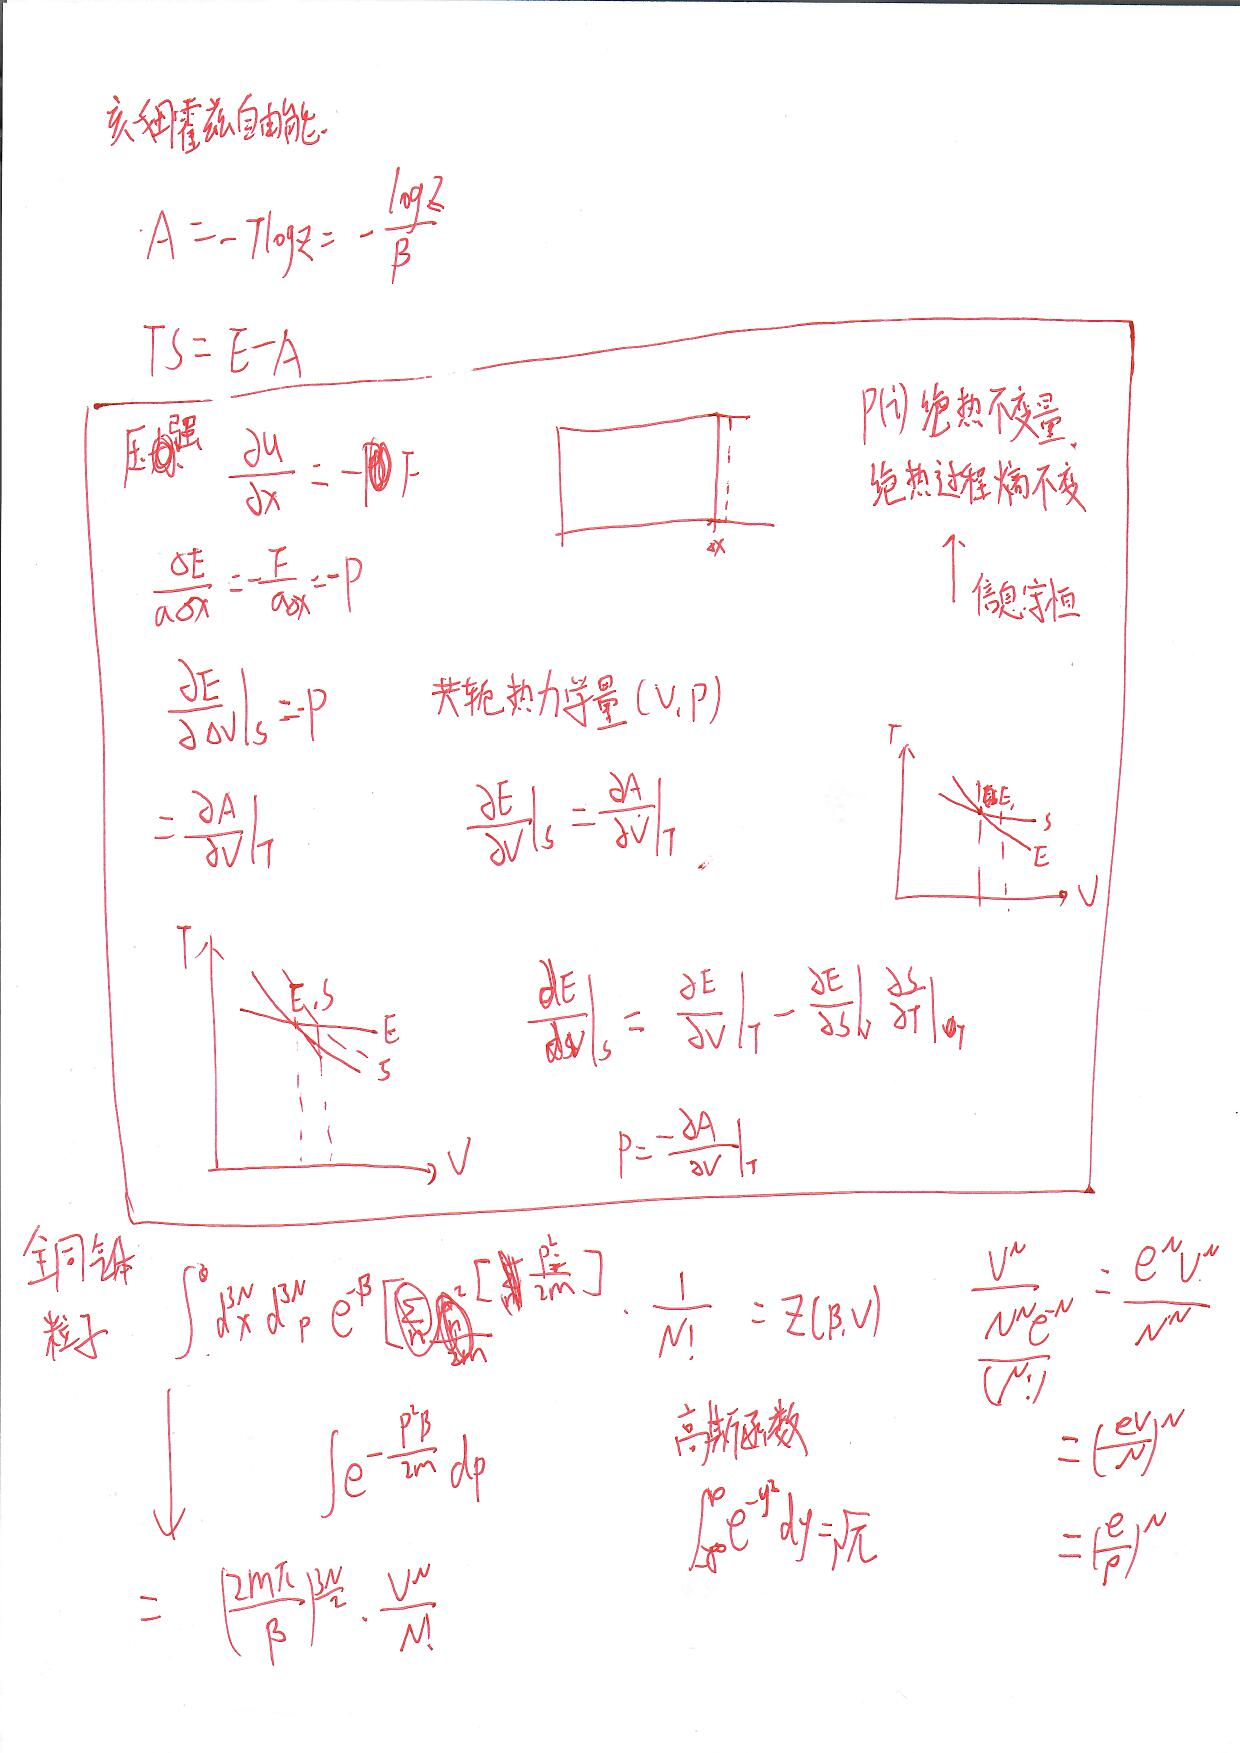 亥姆霍兹自由能.
A = -Tlogz = - logZ/β
TS = E-A
压强 ∂u/∂x = - F
P(i) 绝热不变量.
绝热过程熵不变
↑ 信息守恒
Δx
ΔE/aΔx = -F/aΔx = -P
∂E/∂ΔV|s = -P 共轭热力学量 (V, P)
= ∂A/∂V|T ∂E/∂V|s = ∂A/∂V|T.
T E. S E V
T E.S E S V
dE/dV|s = ∂E/∂V|T - ∂E/∂S|V ∂S/∂T|T
P = -∂A/∂V|T
全同气体
粒子
∫ d^3N x d^3N p e^-β [p²/2m] · 1/N! = Z(β,V)
V^N/N^N e^-N = e^N V^N/N^N
(N!)
↓ ∫e^-p²β/2m dp
高斯函数
= (eV/N)^N
∫e^-y² dy = √π
= (e/ρ)^N
= (2mπ/β)^3N/2 · V^N/N!